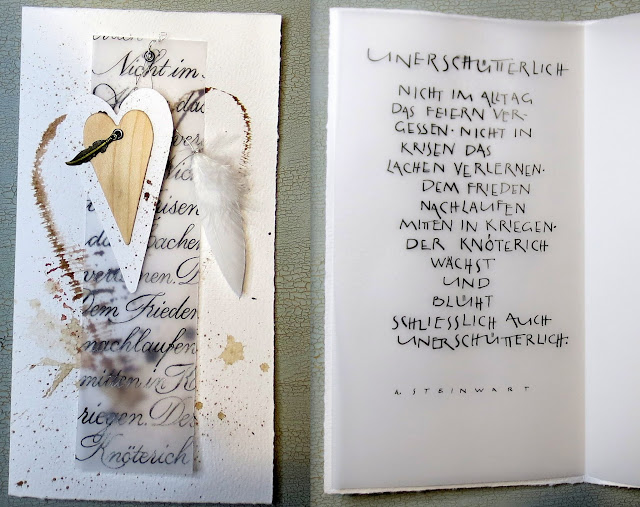 Nicht im
das
ver
isen
dem Frieden
nachlaufen
mitten in K
riegen. De
Knöterich
UNERSCHÜTTERLICH
NICHT IM ALLTAG
DAS FEIERN VER-
GESSEN · NICHT IN
KRISEN DAS
LACHEN VERLERNEN ·
DEM FRIEDEN
NACHLAUFEN
MITTEN IN KRIEGEN ·
DER KNÖTERICH
WÄCHST
UND
BLÜHT
SCHLIESSLICH AUCH
UNERSCHÜTTERLICH ·
A. STEINWART